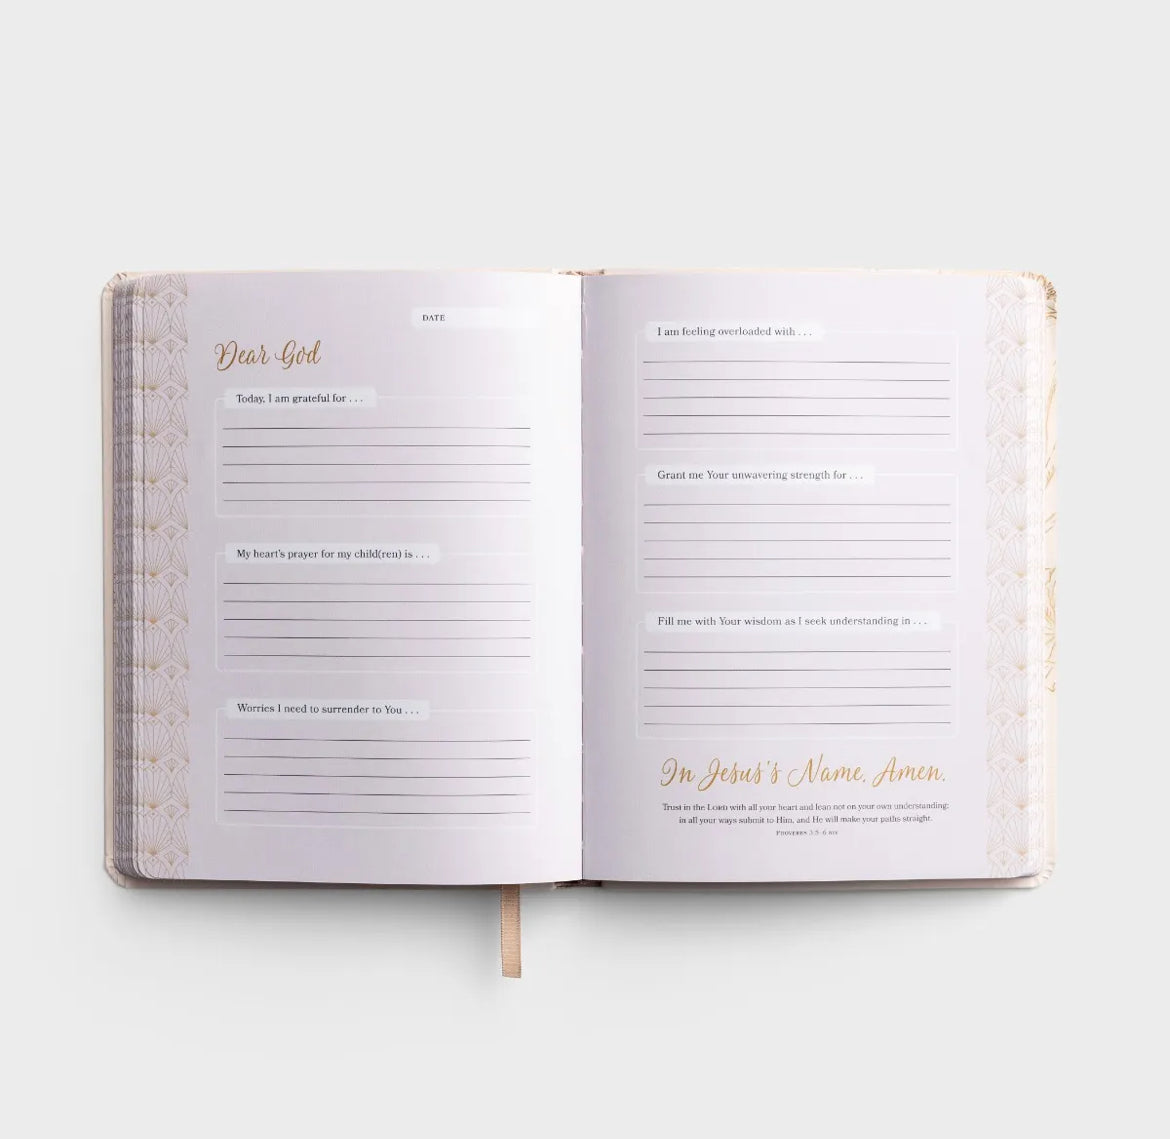 DATE
Dear God
Today, I am grateful for . . .
My heart's prayer for my child(ren) is . . .
Worries I need to surrender to You . . .
I am feeling overloaded with . . .
Grant me Your unwavering strength for . . .
Fill me with Your wisdom as I seek understanding in . . .
In Jesus's Name, Amen.
Trust in the LORD with all your heart and lean not on your own understanding;
in all your ways submit to Him, and He will make your paths straight.
PROVERBS 3:5–6 NIV